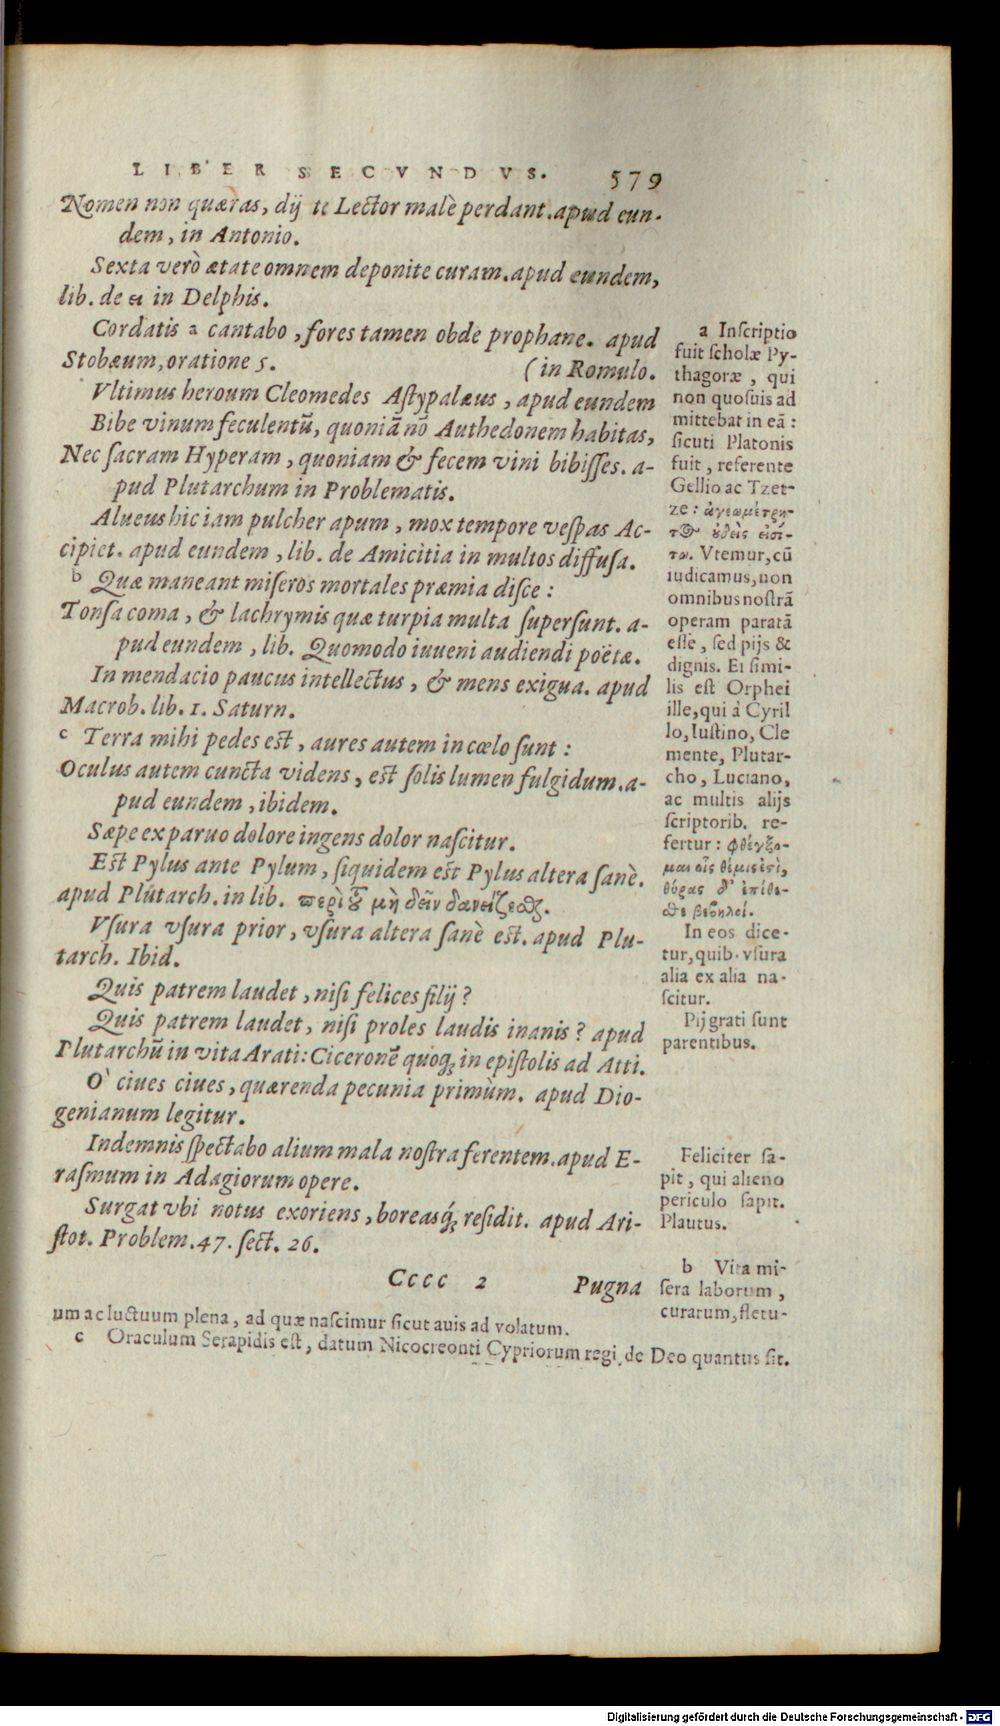 LIBER SECVNDVS. 579
Nomen non quæras, dij te Lector malè perdant. apud eun-
dem, in Antonio.
Sexta verò ætate omnem deponite curam. apud eundem,
lib. de ει in Delphis.
Cordatis a cantabo, fores tamen obde prophane. apud
Stobæum, oratione 5. (in Romulo.
Vltimus heroum Cleomedes Aſtypalæus, apud eundem
Bibe vinum feculentũ, quoniã nõ Authedonem habitas,
Nec ſacram Hyperam, quoniam & fecem vini bibiſſes. a-
pud Plutarchum in Problematis.
Alueus hic iam pulcher apum, mox tempore veſpas Ac-
cipiet. apud eundem, lib. de Amicitia in multos diffuſa.
b Quæ maneant miſeros mortales præmia diſce:
Tonſa coma, & lachrymis quæ turpia multa ſuperſunt. a-
pud eundem, lib. Quomodo iuueni audiendi poëtæ.
In mendacio paucus intellectus, & mens exigua. apud
Macrob. lib. 1. Saturn.
c Terra mihi pedes eſt, aures autem in cœlo ſunt:
Oculus autem cuncta videns, eſt ſolis lumen fulgidum. a-
pud eundem, ibidem.
Sæpe ex paruo dolore ingens dolor naſcitur.
Eſt Pylus ante Pylum, ſiquidem eſt Pylus altera ſanè.
apud Plutarch. in lib. περὶ τοῦ μὴ δεῖν δανείζεσθαι.
Vſura vſura prior, vſura altera ſanè eſt. apud Plu-
tarch. Ibid.
Quis patrem laudet, niſi felices filij?
Quis patrem laudet, niſi proles laudis inanis? apud
Plutarchũ in vita Arati: Ciceronẽ quoq; in epiſtolis ad Atti.
O` ciues ciues, quærenda pecunia primùm. apud Dio-
genianum legitur.
Indemnis ſpectabo alium mala noſtra ferentem. apud E-
raſmum in Adagiorum opere.
Surgat vbi notus exoriens, boreasq́; reſidit. apud Ari-
ſtot. Problem. 47. ſect. 26.
Cccc 2 Pugna
a Inſcriptio
fuit ſcholæ Py-
thagoræ, qui
non quoſuis ad
mittebat in eã:
ſicuti Platonis
fuit, referente
Gellio ac Tzet-
ze: ἀγεωμέτρη-
τος οὐδεὶς εἰσί-
τω. Vtemur, cũ
iudicamus, non
omnibus noſtrã
operam paratã
eſſe, ſed pijs &
dignis. Ei ſimi-
lis eſt Orphei
ille, qui à Cyril
lo, Iuſtino, Cle
mente, Plutar-
cho, Luciano,
ac multis alijs
ſcriptorib. re-
fertur: φθέγξο-
μαι οἷς θέμις ἐστὶ,
θύρας δ' ἐπίθε-
σθε βεβηλοί.
In eos dice-
tur, quib. vſura
alia ex alia na-
ſcitur.
Pij grati ſunt
parentibus.
Feliciter ſa-
pit, qui alieno
periculo ſapit.
Plautus.
b Vita mi-
ſera laborum,
curarum, fletu-
um ac luctuum plena, ad quæ naſcimur ſicut auis ad volatum.
c Oraculum Serapidis eſt, datum Nicocreonti Cypriorum regi, de Deo quantus ſit.
Digitalisierung gefördert durch die Deutsche Forschungsgemeinschaft - DFG